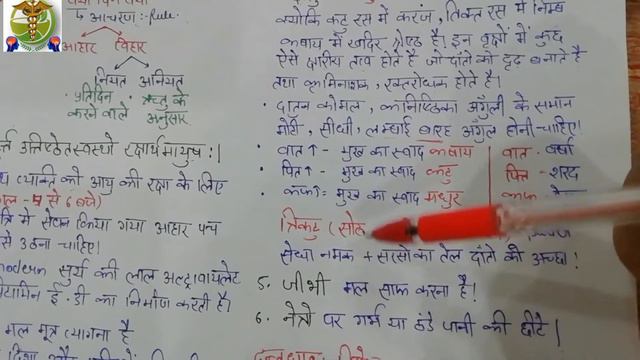 ↳ आचरण :- Rule.
आहार विहार
नियत अनियत
• प्रतिदिन
करने वाले
• ऋतु के
अनुसार
उत्तिष्ठेत स्वस्थो रक्षार्थमायुष: |
व्यक्ति को आयु की रक्षा के लिए
से 6 बजे)
मे सेवन किया गया आहार पच
से उठना चाहिए।
modern सुर्य की लाल अल्ट्रावायलेट
विटामिन ई. डी का निर्माण करती है।
मल मूत्र त्यागना है
क्योकि कटु रस में करंज, तिक्त रस मे निम्ब
कषाय मे खदिर श्रेष्ठ है। इन वृक्षो में कुछ
ऐसे क्षारीय तत्व होते है जो दांतो को दृढ़ बनाते है
तथा कृमिनाशक, रक्तरोधक होते है।
• दातन कोमल, कानिष्ठिका अंगुली के समान
मोटी, सीधी, लम्बाई बारह अंगुल होनी चाहिए।
• वात↑ - मुख का स्वाद कषाय
• पित↑ - मुख का स्वाद कटु
• कफ↑ = मुख का स्वाद मधुर
वात - वर्षा
पित - शरद
कफ -
त्रिकुट (सोंठ
सेंधा नमक + सरसो का तेल दांतो को अच्छा।
5. जीभी मल साफ करना है।
6. नेत्रो पर गर्म या ठंडे पानी की छीटे |